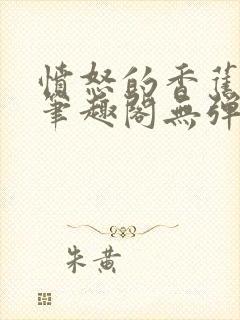 憤怒的香蕉
筆趣閣無彈
朱黃